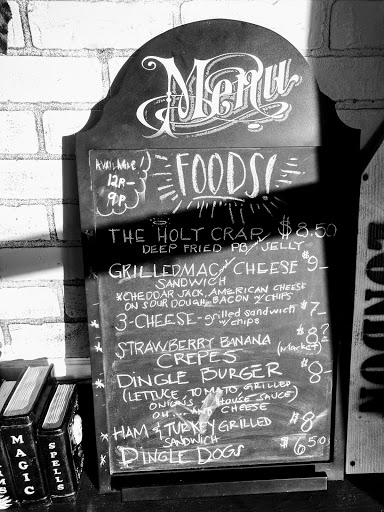 Menu
AVAILABLE
12P-
9P.
FOODS!
THE HOLY CRAP $8.50
DEEP FRIED PB/JELLY
GRILLED MAC & CHEESE $9-
SANDWICH
*CHEDDAR JACK, AMERICAN CHEESE
ON SOUR DOUGH-BACON w/CHIPS
3-CHEESE-grilled sandwich $7-
w/chips
STRAWBERRY BANANA $8?
CREPES (Market)
DINGLE BURGER $8-
(LETTUCE, TOMATO GRILLED
ONIONS & HOUSE SAUCE)
OH... AND CHEESE
HAM & TURKEY GRILLED $8-
SANDWICH
DINGLE DOGS $6.50
LONDON
MAGIC
SPELLS